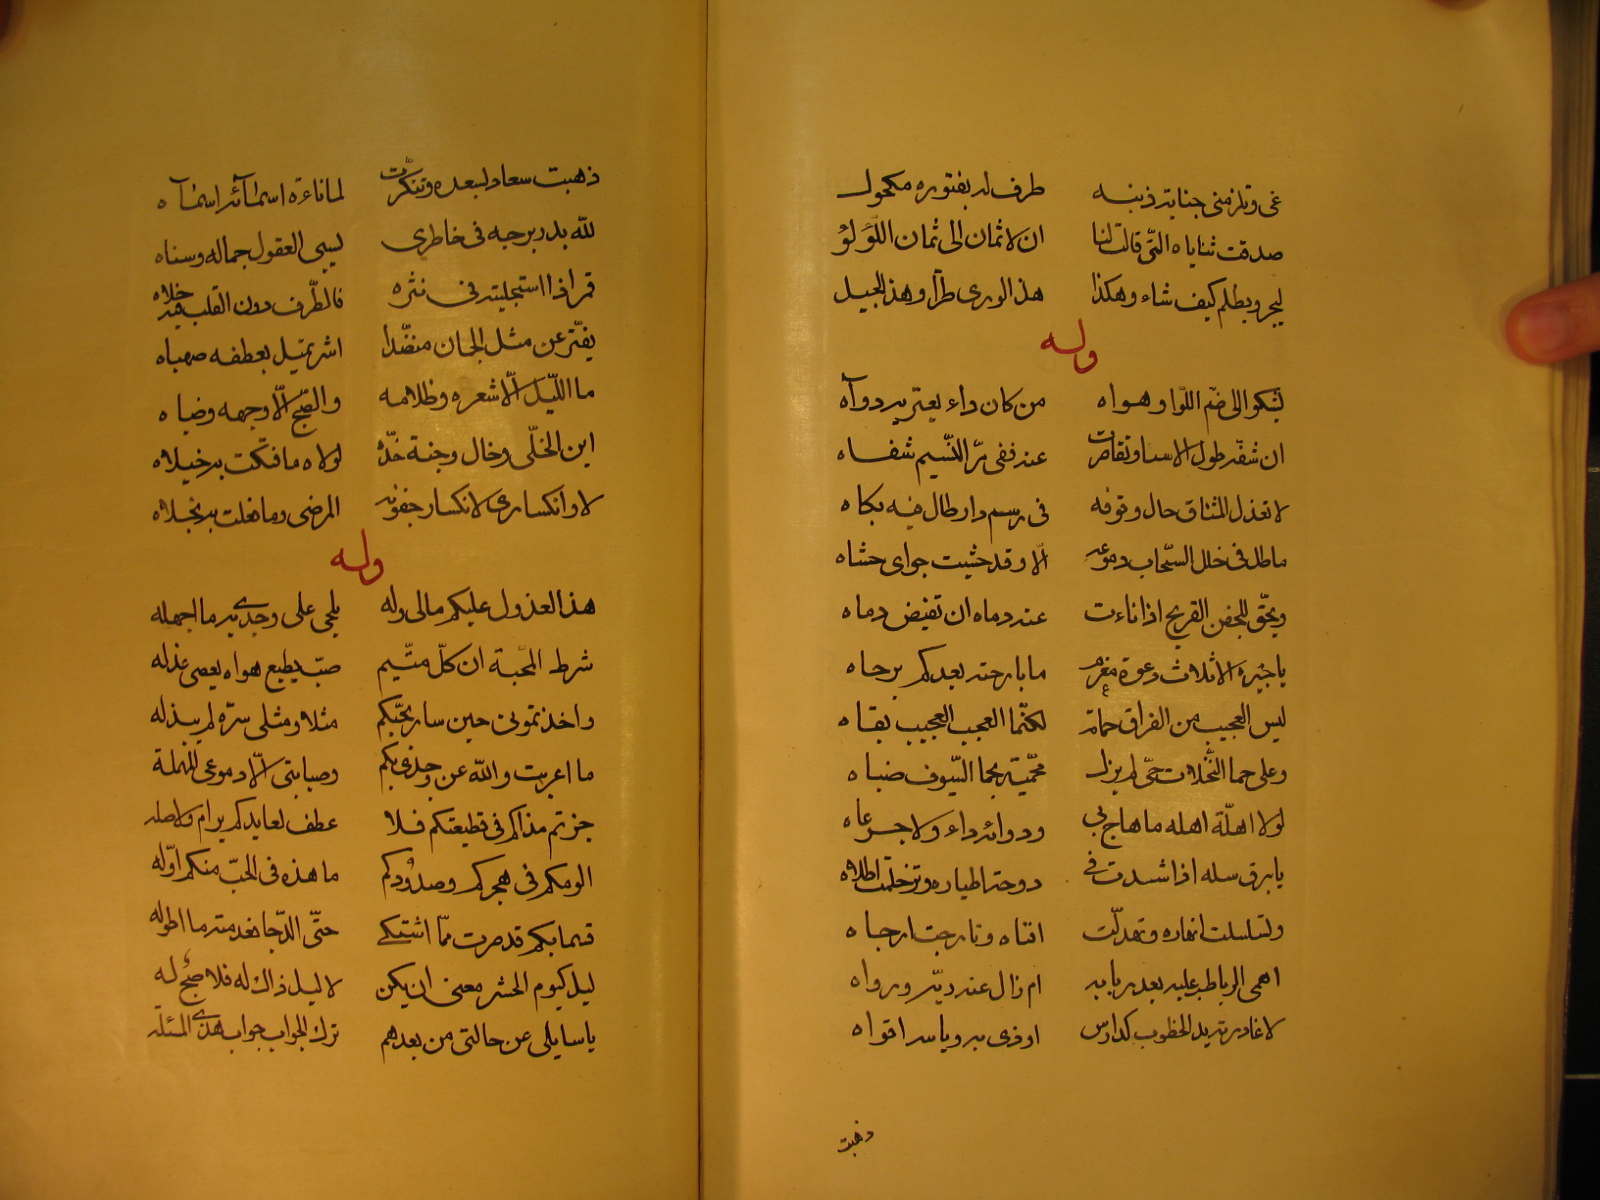 غي وتلزمني جنايته ذنبه طرف له بفتوره مكحول
صدقت ثناياه التي قالت لنا ان لاثمان الى ثمان اللؤلؤ
ليجر ويظلم كيف شاء وهكذا هذ الورى طرا وهذ الجيل
وله
يشكو الى ضم اللوا وهواه من كان داء يعتريه دوآه
ان شقه طول الاسا وتقاصرت عنه ففي مرّ النسيم شفاه
لا تعذل المشتاق حال وقوفه في رسم دار طال فيه بكاه
ماطل في خلل السحاب دموعه الّا وقد حشيت جواى حشاه
ويحق للجفن القريح اذا ناءت عنه دماه ان تفيض دماه
يا جيرة الاثلاث دعوة مغرم ما بارحته بعدكم برحاه
ليس العجيب من الفراق حمامه لكنّما العجب العجيب بقاه
وعلى حما النّخلات حيّ لم يزل محميّة بحما السّيوف ضباه
لولا اهلّة اهله ما هاج بي ودوائه داء ولا جرعاه
يا برق سله اذا شدت في دوحه اطياره وترنحت اطلاه
ولتسلسلت انهاره وتهدلت افناه وتارجت ارجاه
اهمى الرباط عليه بعد ربابه ام زال عنه ديّه ورواه
لا غادرته يد الخطوب كدارس اودى به وباسه اقواه
ذهبت
ذهبت سعاد لبعده وتنكّرت لما ناءة اسمآئه اسمآه
لله بدر برجه في خاطري يسبي العقول جماله وسناه
قمر اذا استجليته في نثره فالطّرف دون القلب فيه خلاه
يفترّ عن مثل الجمان منضّدا اشر يميل بعطفه صهباه
ما اللّيل الّا شعره وظلامه والصّبح الّا وجهه وضياه
اين الخلّي وخال وجنة خدّه لولاه ما فتكت به خيلاه
لا وانكساري لانكسار جفونه المرضى وما فعلت به نجلاه
وله
هذا العذول عليكم مالي وله يلحى على وجدي به ما اجهله
شرط المحبة ان كلّ متيّم صبّ يطيع هواه يعصى عذله
واخذتموني حين سار بحبّكم مثلا ومثلي سرّه لم يبذله
ما اعربت والله عن وجدي بكم وصبابتي الّا دموعي المهملة
جزتم مذاكم في قطيعتكم فلا عطف لعايدكم يرام ولا صله
الومكم في هجركم وصدودكم ما هذه في الحبّ منكم اوّله
قسما بكم قد صرت ممّا اشتكي حتّى الدّجا بعدمته ما اطوله
ليل كيوم الحشر معنى ان يكن لا ليل ذاك له فلا صبح له
يا سايلي عن حالتي من بعدهم ترك الجواب جواب هذي المسئله